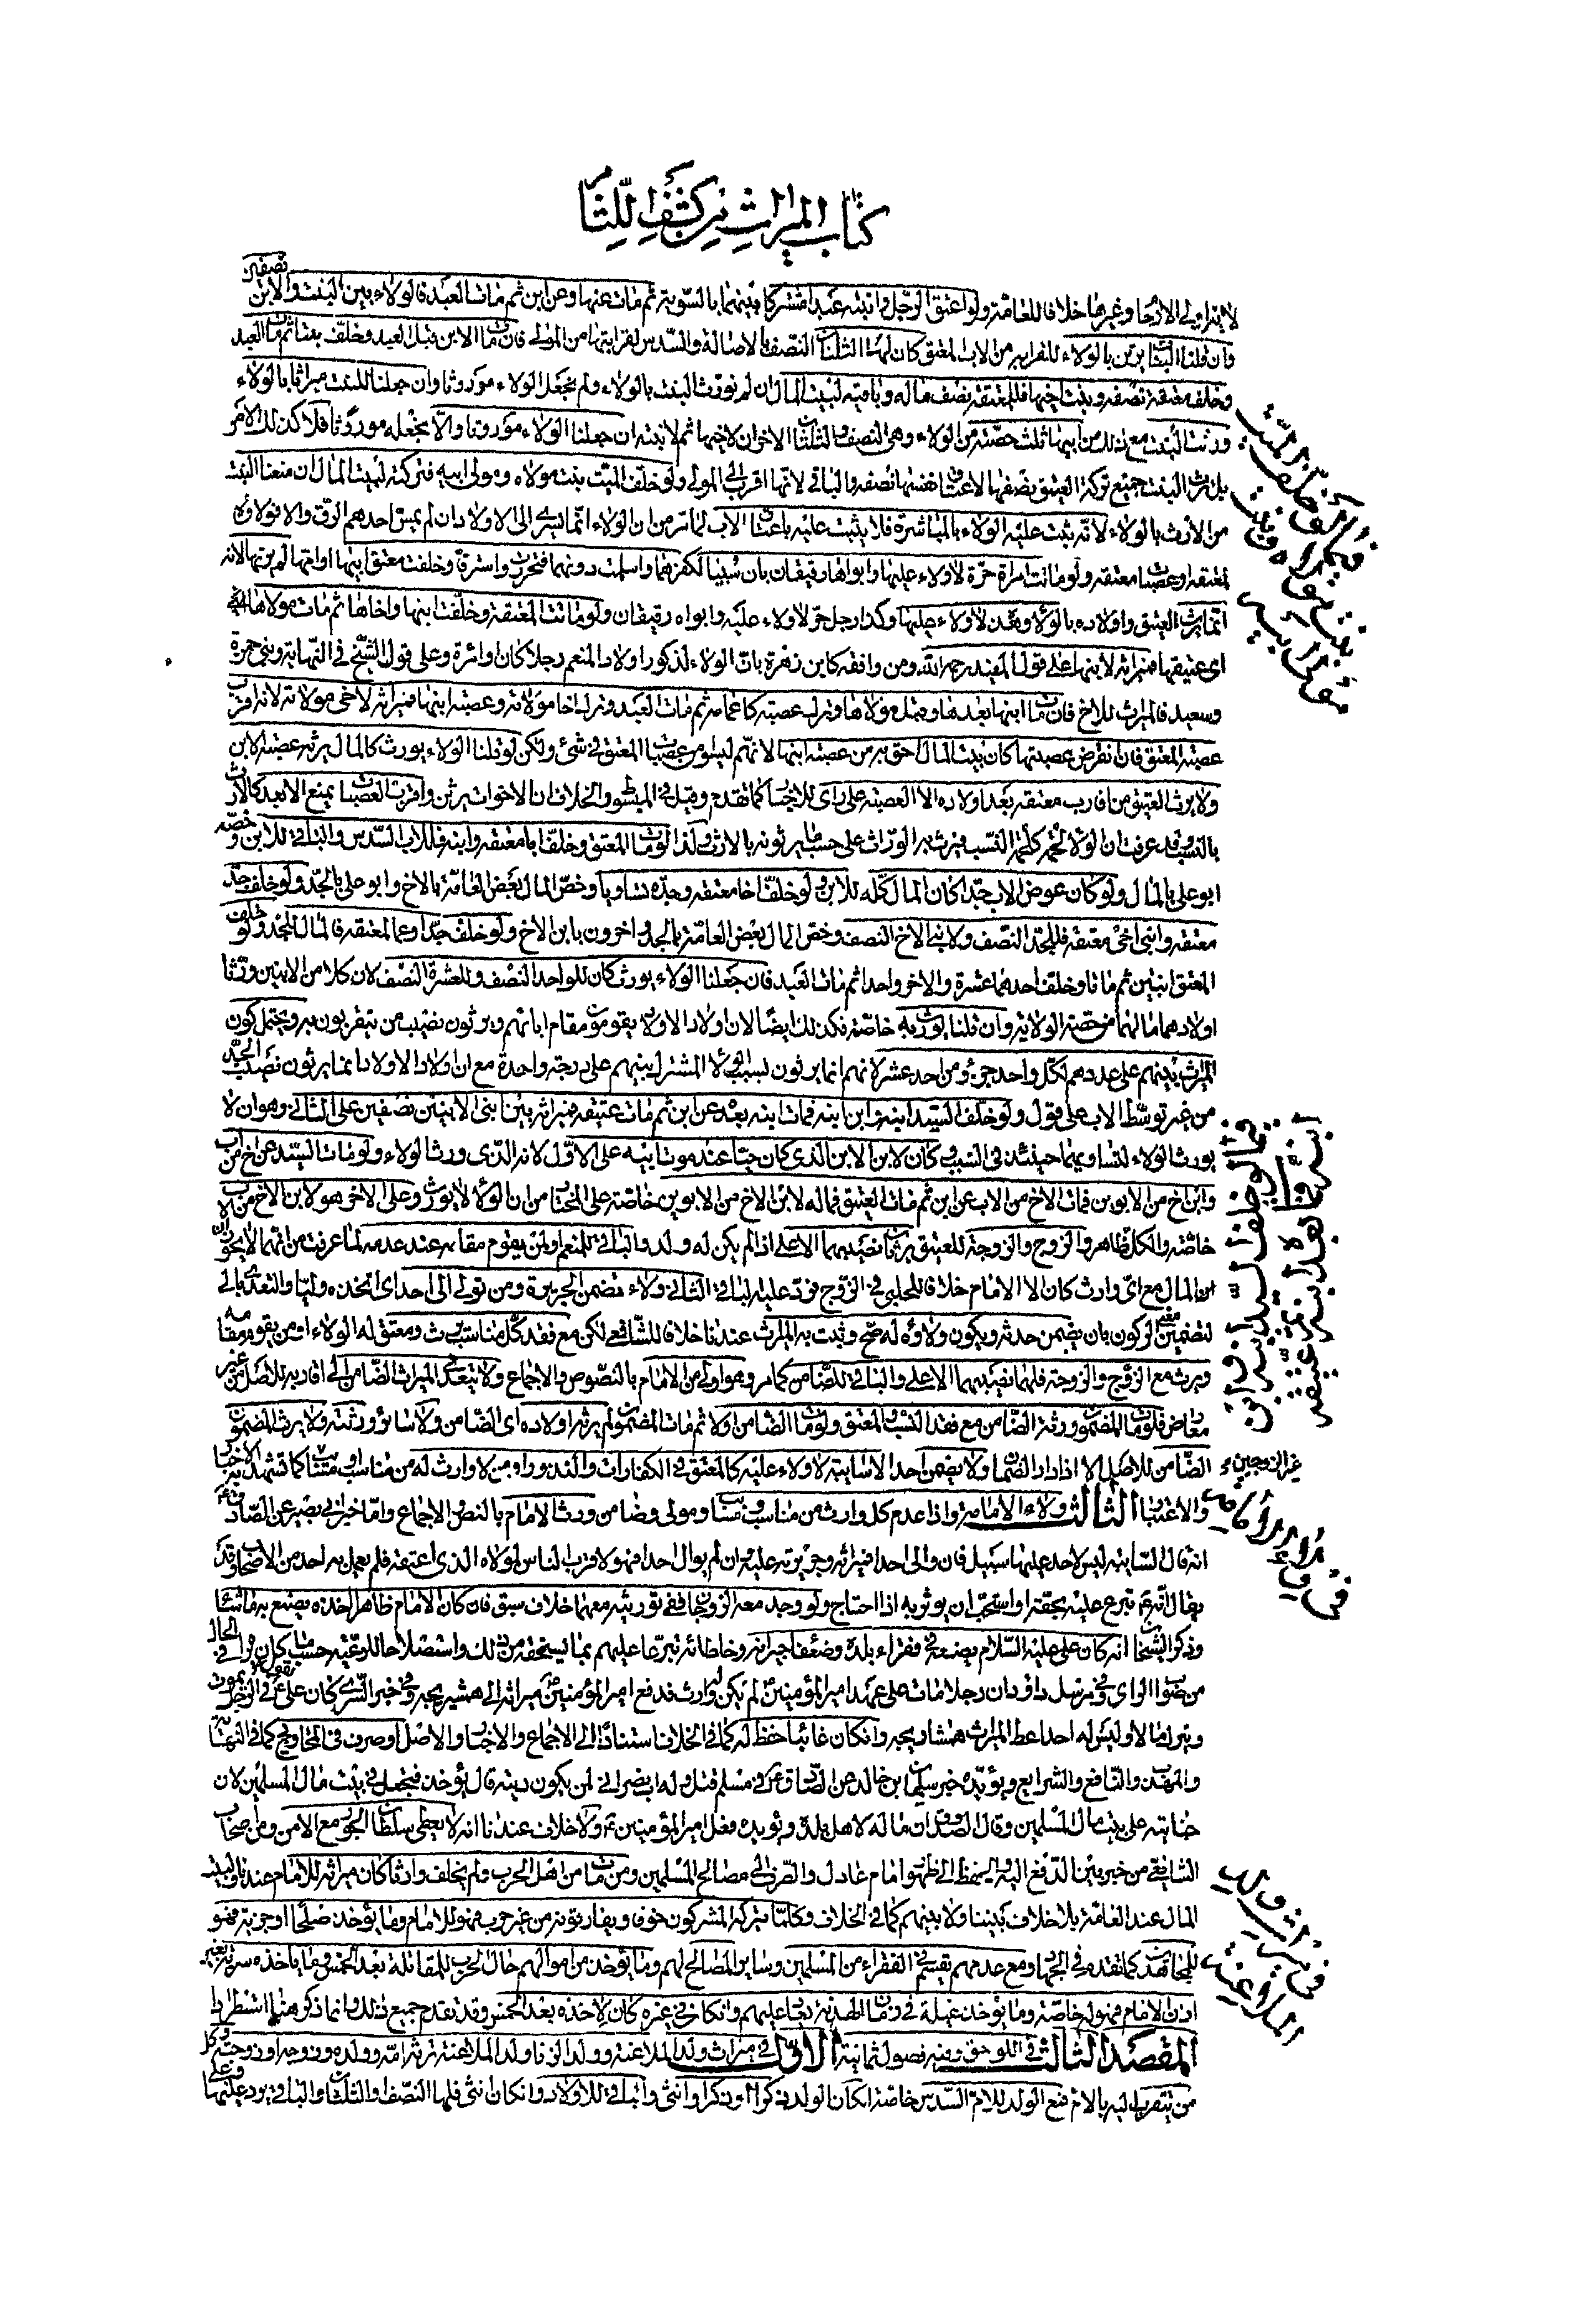 كتاب الميراث من كشف اللثام
لابتداء ولي الارحام وغيرها خلافا للعامة ولو اعتق الرجل وابنته عبدا مشتركا بينهما بالسوية ثم مات عنها وعن ابن ثم مات العبد فالولاء بين البنت والابن نصفين
وان قلنا البنات يرثن بالولاء من الاب المعتق كان لها الثلثان النصف بالاصالة والسدس لقرابتها من المولى فان مات الابن قبل العبد وخلف بنتا ثم مات العبد
وخلف معتقة نصفه وبنت اخيها فللمعتقة نصف ماله وباقيه لبيت المال ان لم نورث البنت بالولاء ولم نجعل الولاء موروثا وان جعلنا للبنت ميراثا بالولاء
بل ترث البنت جميع تركة العتيق نصفها لاعتاق نصفه والباقي لانها اقرب الى المولى ولو خلف الميت بنت مولاه ومولى ابيه فتركته لبيت المال ان منعنا البنت
من الارث بالولاء لانه يثبت عليه الولاء بالمباشرة فلا يثبت عليه باعتاق الاب لما مر من ان الولاء انما يسري الى الاولاد ان لم يمس احدهم الرق والا فولاؤه
لمعتقه او عصبات معتقه ولو ماتت امراة حرة لا ولاء عليها وابواها رقيقان بان سبيا لكفرهما واسلمت دونهما فتحررت واسترقا وخلفت معتق ابيها او امها لم يرثها لانه
انما يرث العتيق واولاده بالولاء وهذه لا ولاء عليها وكذا رجل حر لا ولاء عليه وابواه رقيقان ولو ماتت المعتقة وخلفت ابنها واخاها ثم مات مولاها
اي عتيقها فميراثه لابنها على قول المفيد رحمه الله ومن وافقه كابن زهرة بان الولاء لذكور اولاد المنعم رجلا كان او امرة وعلى قول الشيخ في النهاية وبني حمزة
وسعيد فالميراث للاخ فان مات ابنها بعدها وقبل مولاها وترك عصبته كاعمامه ثم مات العبد وترك اخا مولاته وعصبة ابنها فميراثه لاخي مولاته لانه اقرب
عصبة المعتق فان انقرض عصبتها كان بيت المال احق به من عصبة ابنها لانهم ليسوا من عصبات المعتق في شئ ولكن لو قلنا الولاء يورث كالمال يرثه عصبة الابن
ولا يرث العتيق من اقارب معتقه بعد اولاده الا العصبة على راي للاخبار كما تقدم وقيل في المبسوط والخلاف ان الاخوات يرثن واقرب العصبات يمنع الابعد كالارث
بالنسب وقد عرفت ان الولاء لحمة كلحمة النسب فيرث به الوراث على حسب ما يرثونه بالارث ولذا لو مات المعتق وخلف ابا معتقه وابنه فللاب السدس والباقي للابن وخصه
ابو علي بالمال ولو كان عوض الاب جد كان المال كله للابن ولو خلف اخا معتقه وجده تساويا وخص المال بعض العامة بالاخ وابو علي بالجد ولو خلف جد
معتقه وابني اخي معتقه فللجد النصف ولابني الاخ النصف وخص المال بعض العامة بالجد واخرون بابن الاخ ولو خلف جدا وعما لمعتقه فالمال للجد ولو خلف
المعتق ابنين ثم ماتا وخلف احدهما عشرة والاخر واحدا ثم مات العبد فان جعلنا الولاء يورث كان للواحد النصف وللعشرة النصف لان كلا من الابنين ورثا
اولادهما مالهما من حصة الولاية وان قلنا يورث به خاصة فكذلك ايضا لان اولاد الاولاد يقومون مقام ابائهم ويرثون نصيب من يتقربون به ويحتمل كون
الميراث بينهم على عددهم لكل واحد جزء من احد عشر لانهم انما يرثون بسبب الولاء المشترك بينهم على درجة واحدة مع ان اولاد الاولاد انما يرثون نصيب الجد
من غير توسط الاب على قول ولو خلف السيد ابنه وابن ابنه فمات ابنه بعده عن ابن ثم مات عتيقه فميراثه بين ابني الابنين نصفين على الثاني وهو ان لا
يورث الولاء لتساويهما حينئذ في السبب وكان لابن الابن الذي كان حيا عند موت ابيه على الاول لانه الذي ورث الولاء ولو مات السيد عن اخ من اب
وابن اخ من الابوين فمات الاخ من الاب عن ابن ثم مات العتيق فماله لابن الاخ من الابوين خاصة على المختار من ان الولاء لا يورث وعلى الاخر هو لابن الاخ من الاب
خاصة والكل ظاهر والزوج والزوجة للعتيق يرثان نصيبهما الاعلى اذا لم يكن له ولد والباقي للمنعم او لمن يقوم مقامه عند عدمه لما عرفت من انهما لا يحجبان
لتضمين الركون بان يضمن حدثه ويكون ولاؤه له صح ويثبت به الميراث عندنا خلافا للشافعي لكن مع فقد كل مناسب يرث ومعتق له الولاء او من يقوم مقامه
ويرث مع الزوج والزوجة فلهما نصيبهما الاعلى والباقي للضامن كما مر وهو اولى من الامام بالنصوص والاجماع ولا يتعدى الميراث الضامن الى اقاربه للاصل من غير
معارض فلو مات المضمون ورثه الضامن مع فقد النسب والمعتق ولو مات الضامن اولا ثم مات المضمون لم يرثه اولاده اي الضامن ولا سائر ورثته ولا يرث المضمون
الضامن للاصل الا اذا دار الضمان ولا يضمن احد الا سايبة لا ولاء عليه كالمعتق في الكفارات والنذور او من لا وارث له من مناسب او مسبب كما تشهد به الاخبار
والاعتبار الثالث ولاء الامامة واذا عدم كل وارث من مناسب ومسبب ومولى وضامن ورث الامام بالنص والاجماع واما خبر ابي بصير عن الصادق
انه قال السايبة ليس لاحد عليها سبيل فان والى احدا فميراثه له وجريرته عليه وان لم يوال احدا فهو لاقرب الناس لمولاه الذي اعتقه فلم يعمل به احد من الاصحاب وقد
يقال انه تبرع عليه بحقه او استحب ان يؤثر به اذا احتاج ولو وجد معه الزوجان ففي توريثه معهما خلاف سبق فان كان الامام ظاهرا اخذه يصنع به ما شاء
وذكر الشيخان انه كان علي عليه السلام يضعه في فقراء بلده وضعفاء جيرانه وخلطائه تبرعا عليهم بما يستحقه من ذلك واستصلاحا للرعية حسب ما كان يراه في الحال
من صواب الراي وفي مرسل داود ان رجلا مات على عهد امير المؤمنين لم يكن له وارث فدفع امير المؤمنين ميراثه الى همشهريجه وفي خبر السري كان علي يقول في الرجل يموت
ويترك مالا وليس له احد اعط الميراث همشاريجه وان كان غائبا حفظ له كما في الخلاف استنادا الى الاجماع والاخبار والاصل او صرف في المحاويج كما في النهاية
والمهذب والنافع والشرايع ويؤيده خبر سليمان بن خالد عن الصادق في مسلم قتل وله اب نصراني لمن يكون ديته قال يؤخذ فيجعل في بيت مال المسلمين لان
جنايته على بيت مال المسلمين وقال الصدوقان ماله لاهل بلده ويؤيده فعل امير المؤمنين ولا خلاف عندنا انه لا يعطى سلطان الجور مع الامن ومن اصحاب
الشافعي من خير بين الدفع اليه والحفظ الى ظهور امام عادل والصرف الى مصالح المسلمين ومن مات من اهل الحرب ولم يخلف وارثا كان ميراثه للامام عندنا ولبيت
المال عند العامة بلا خلاف بيننا ولا بينهم كما في الخلاف وكلما يتركه المشركون خوفا ويفارقونه من غير حرب فهو للامام وما يؤخذ صلحا او جزية فهو
للمجاهدين كما تقدم في الجهاد ومع عدمهم يقسم في الفقراء من المسلمين وساير المصالح لهم وما يؤخذ من اموالهم حال الحرب للمقاتلة بعد الخمس وما ياخذه سرية بغير
اذن الامام فهو له خاصة وما يؤخذ غيلة في زمان الهدنة يعاد عليهم وان كان في غيره كان لاخذه بعد الخمس وقد تقدم جميع ذلك وانما ذكر هنا استطرادا
المقصد الثالث في اللواحق وفيه فصول ثمانية الاول في ميراث ولد الملاعنة وولد الزنا ولد الملاعنة ترثه امه وولده وزوجه او زوجته وكل
من يتقرب اليه بالام فمع الولد للام السدس خاصة ان كان الولد ذكرا او ذكرا وانثى والباقي للاولاد وان كان انثى فلها النصف والثلثان والباقي يرد عليهما
غير الزوجين
في ولاء الامامة
في ميراث ولد
الملاعنة